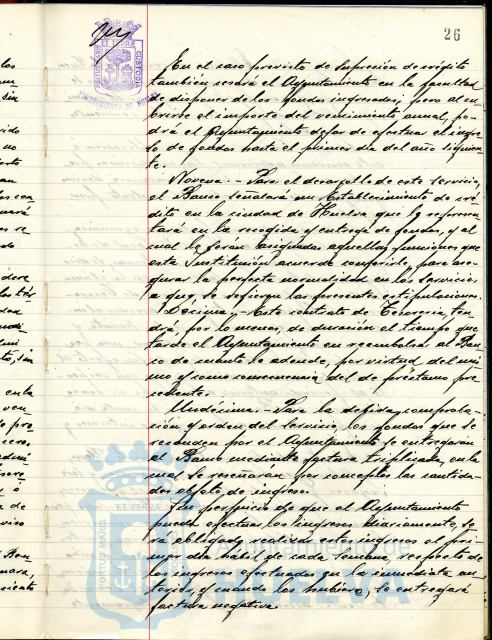 26
En el caso previsto de supresión de crédito
también cesará el Ayuntamiento en la facultad
de disponer de los fondos ingresados; pero al cu-
brirse el importe del vencimiento anual, po-
drá el Ayuntamiento dejar de efectuar el ingre-
so de fondos hasta el primer día del año siguien-
te.
Novena.- Para el desarrollo de este servicio,
el Banco señalará un Establecimiento de cré-
dito en la ciudad de Huelva que le represen-
tará en la recogida y entrega de fondos, y al
cual le serán asignadas aquellas funciones que
esta Institución acuerde conferirle, para ase-
gurar la perfecta normalidad en los servicios
a que se refieren las presentes estipulaciones.
Décima.- Este contrato de Tesorería, ten-
drá, por lo menos, de duración el tiempo que
tarde el Ayuntamiento en reembolsar al Ban-
co de cuanto le adeude, por virtud del mis-
mo y como consecuencia del de préstamo pre-
cedente.
Undécima.- Para la debida comproba-
ción y orden del servicio, los fondos que se
recauden por el Ayuntamiento se entregarán
al Banco mediante factura triplicada, en la
cual se reseñarán por conceptos las cantida-
des objeto de ingreso.
Sin perjuicio de que el Ayuntamiento
pueda efectuar los ingresos diariamente, se-
rá obligado realizar estos ingresos el pri-
mer día hábil de cada semana respecto de
los ingresos efectuados en la inmediata an-
terior, y cuando los hubiere, se entregará
factura negativa.
Ayuntamiento de
HUELVA